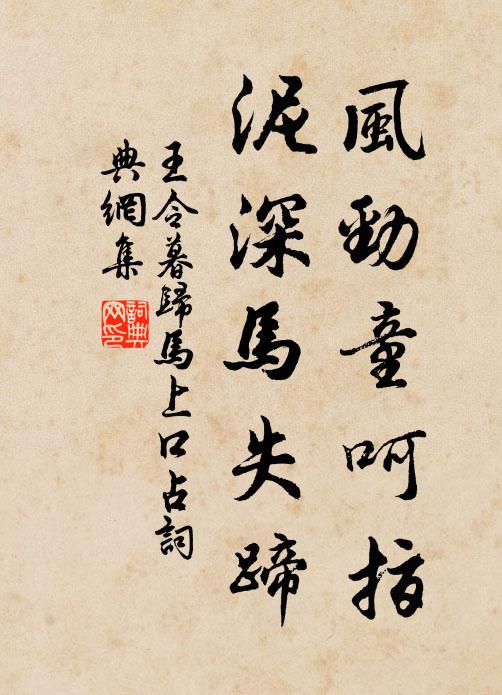 風勁童呵指
泥深馬失蹄
王令暮歸馬上口占詞
典網集
詞典
网印